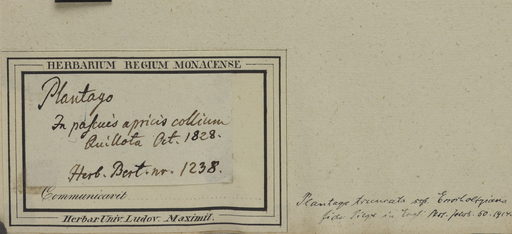 HERBARIUM REGIUM MONACENSE
Plantago
In pascuis apricis collium
Quillota Oct. 1828.
Herb. Bert. nr. 1238.
Communicavit
Herbar. Univ. Ludov. Maximil.
Plantago truncata ssp.
fide Pilger in